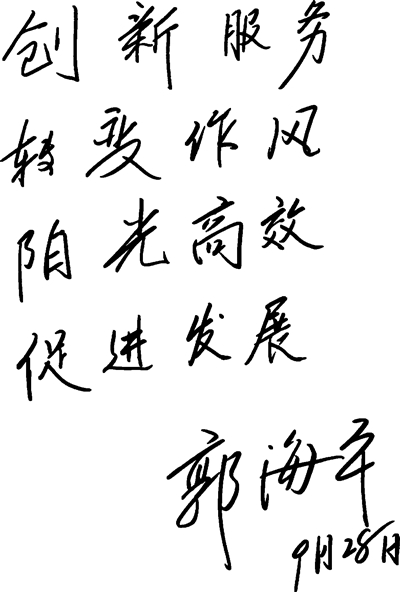 创新服务
转变作风
阳光高效
促进发展
郭海平
9月28日